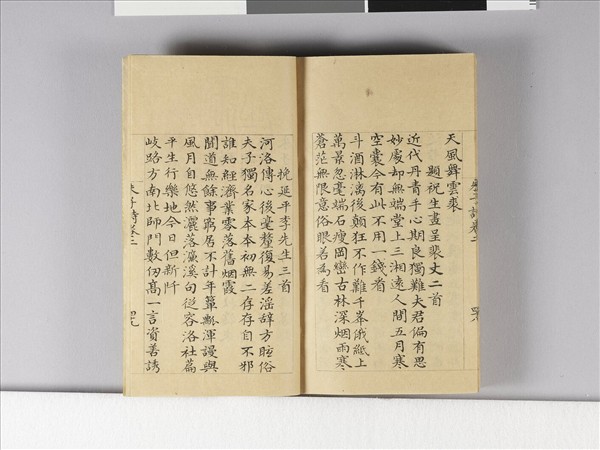 天風舞雲裘
題祝生畫呈裴丈二首
近代丹青手心期良獨難夫君偏有思
妙處却無端堂上三湘遠人間五月寒
空囊今有此不用一錢看
斗酒淋漓後顛狂不作難千峯俄紙上
萬景忽毫端石瘦岡巒古林深烟雨寒
蒼茫無限意俗眼若為看
挽延平李先生三首
河洛傳心後毫釐復易差淫辞方眩俗
夫子獨名家本本初無二存存自不邪
誰知經濟業零落舊烟霞
聞道無餘事窮居不計年簞瓢渾謾與
風月自悠然灑落濂溪句從容洛社篇
平生行樂地今日但新阡
岐路方南北師門數仭髙一言資善誘
朱子詩卷三
四九